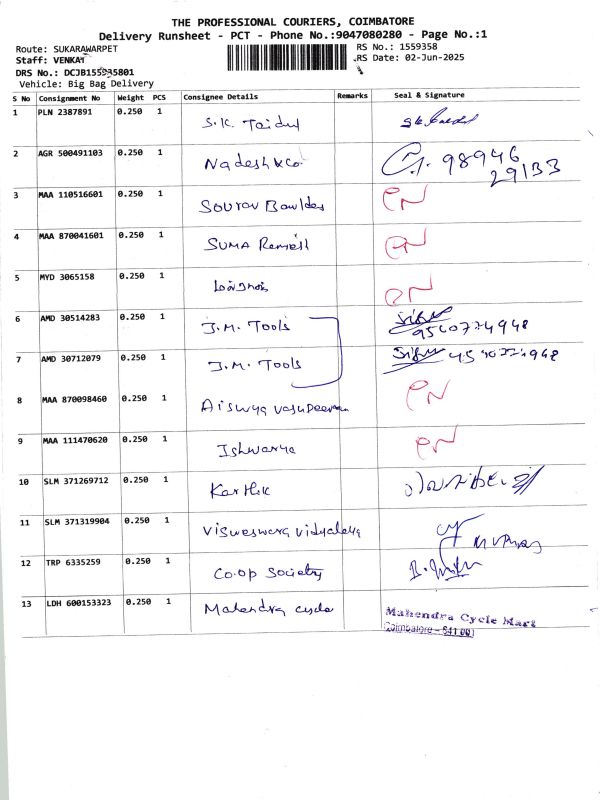 THE PROFESSIONAL COURIERS, COIMBATORE
Delivery Runsheet - PCT - Phone No.:9047080280 - Page No.:1
Route: SUKARAWARPET
RS No.: 1559358
Staff: VENKAT
RS Date: 02-Jun-2025
DRS No.: DCJB155935801
Vehicle: Big Bag Delivery
S No Consignment No Weight PCS Consignee Details Remarks Seal & Signature
1 PLN 2387891 0.250 1 S.K.
2 AGR 500491103 0.250 1 Nadesh & Co 98946
29133
3 MAA 110516601 0.250 1 Sourav Bowldes PN
4 MAA 870041601 0.250 1 Suma Ramesh PN
5 MYD 3065158 0.250 1 PN
6 AMD 30514283 0.250 1 J.M. Tools
9540774948
7 AMD 30712079 0.250 1 J.M. Tools
8 MAA 870098460 0.250 1 Aiswya Vasudevan PN
9 MAA 111470620 0.250 1 Ishwarya PN
10 SLM 371269712 0.250 1 Karthik
11 SLM 371319904 0.250 1 Visweswara Vidyalaya
12 TRP 6335259 0.250 1 Co.op Society
13 LDH 600153323 0.250 1 Mahendra cycle Mahendra Cycle Mart
Coimbatore - 641 001